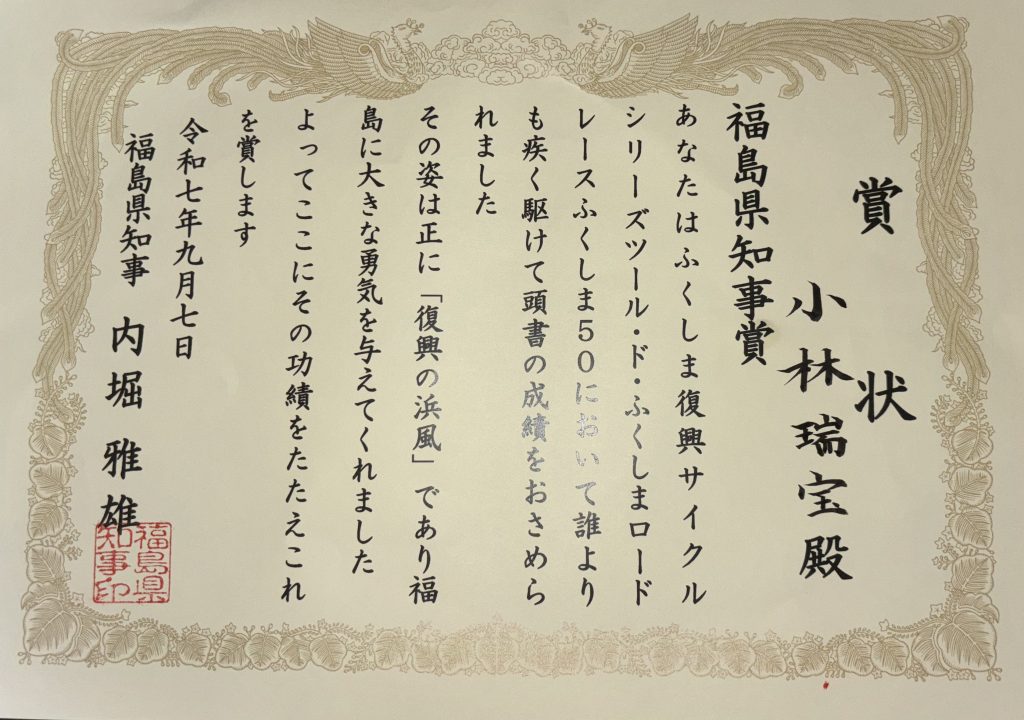 賞状
小林瑞宝殿
福島県知事賞
あなたはふくしま復興サイクル
シリーズツール・ド・ふくしまロード
レースふくしま50において誰より
も疾く駆けて頭書の成績をおさめら
れました
その姿は正に「復興の浜風」であり福
島に大きな勇気を与えてくれました
よってここにその功績をたたえこれ
を賞します
令和七年九月七日
福島県知事 内堀雅雄
福島県
知事印